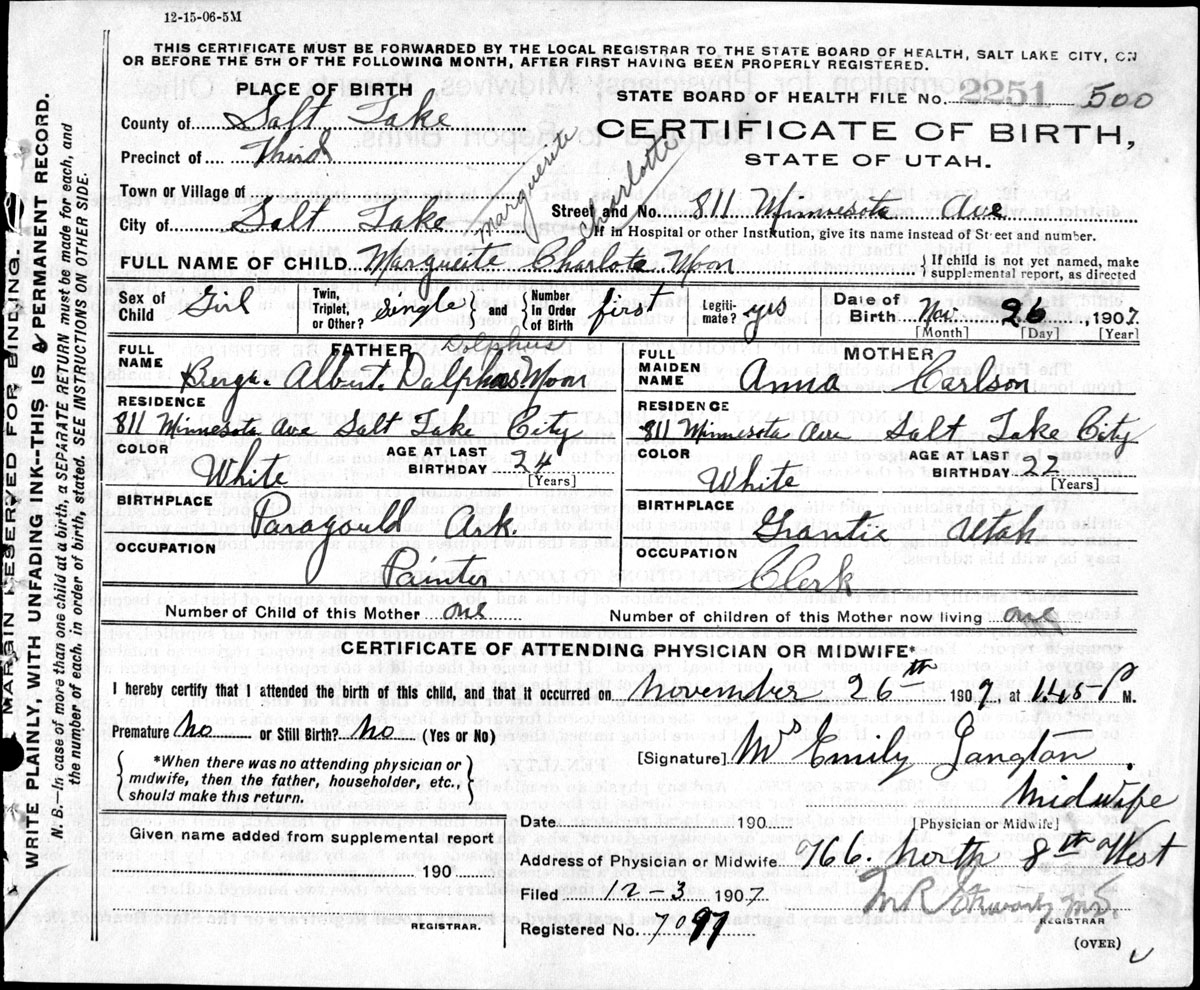 12-15-06-5M
THIS CERTIFICATE MUST BE FORWARDED BY THE LOCAL REGISTRAR TO THE STATE BOARD OF HEALTH, SALT LAKE CITY, ON
OR BEFORE THE 5TH OF THE FOLLOWING MONTH, AFTER FIRST HAVING BEEN PROPERLY REGISTERED.
MARGIN RESERVED FOR BINDING.
WRITE PLAINLY, WITH UNFADING INK--THIS IS A PERMANENT RECORD.
N. B.—In case of more than one child at a birth, a SEPARATE RETURN must be made for each, and
the number of each, in order of birth, stated. SEE INSTRUCTIONS ON OTHER SIDE.
PLACE OF BIRTH
County of Salt Lake
Precinct of Third
Town or Village of
City of Salt Lake
STATE BOARD OF HEALTH FILE No. 2251 500
CERTIFICATE OF BIRTH,
STATE OF UTAH.
Marguerite Charlotte
Street and No. 811 Minnesota Ave
If in Hospital or other Institution, give its name instead of Street and number.
FULL NAME OF CHILD Marguerite Charlote Moon
If child is not yet named, make
supplemental report, as directed
Sex of Child Girl
Twin, Triplet, or Other? single and Number In Order of Birth first
Legiti- mate? yes
Date of Birth Nov. 26, 1907
[Month] [Day] [Year]
FATHER
Dolphus
FULL NAME Albert. Dalphas Moon
RESIDENCE
811 Minnesota Ave Salt Lake City
COLOR White
AGE AT LAST BIRTHDAY 24
[Years]
BIRTHPLACE Paragould Ark.
OCCUPATION Painter
MOTHER
FULL MAIDEN NAME Anna Carlson
RESIDENCE
811 Minnesota Ave Salt Lake City
COLOR White
AGE AT LAST BIRTHDAY 22
[Years]
BIRTHPLACE Grantie Utah
OCCUPATION Clerk
Number of Child of this Mother one
Number of children of this Mother now living one
CERTIFICATE OF ATTENDING PHYSICIAN OR MIDWIFE*
I hereby certify that I attended the birth of this child, and that it occurred on November 26th 1907, at 1.45-P M.
Premature No or Still Birth? No (Yes or No)
*When there was no attending physician or
midwife, then the father, householder, etc.,
should make this return.
[Signature] Mrs Emily Langton.
Midwife
[Physician or Midwife]
Date 190
Given name added from supplemental report
190
REGISTRAR.
Address of Physician or Midwife 766. North 8th West
Filed 12-3 1907
Registered No. 7099
REGISTRAR
(OVER)